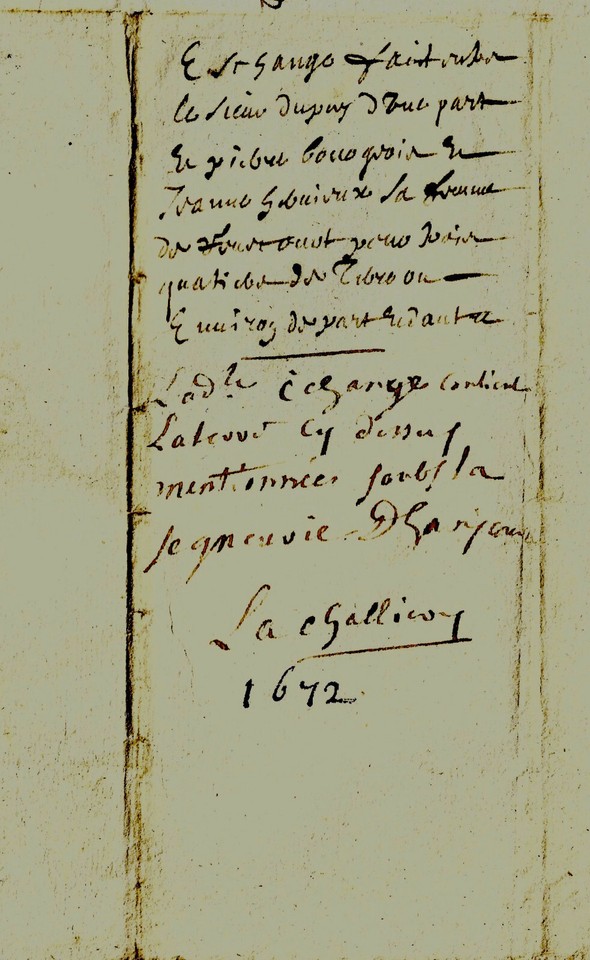 Eschange fait entre
le sieur dupuy d'une part
Et pierre bourgeois Et
Jeanne sa femme
de pour trois
quartiers de terre ou
Environ de part Et d'autre
Lad.te échange contient
La terre Cy dessus
mentionnées soubs la
segneurie
La
1672